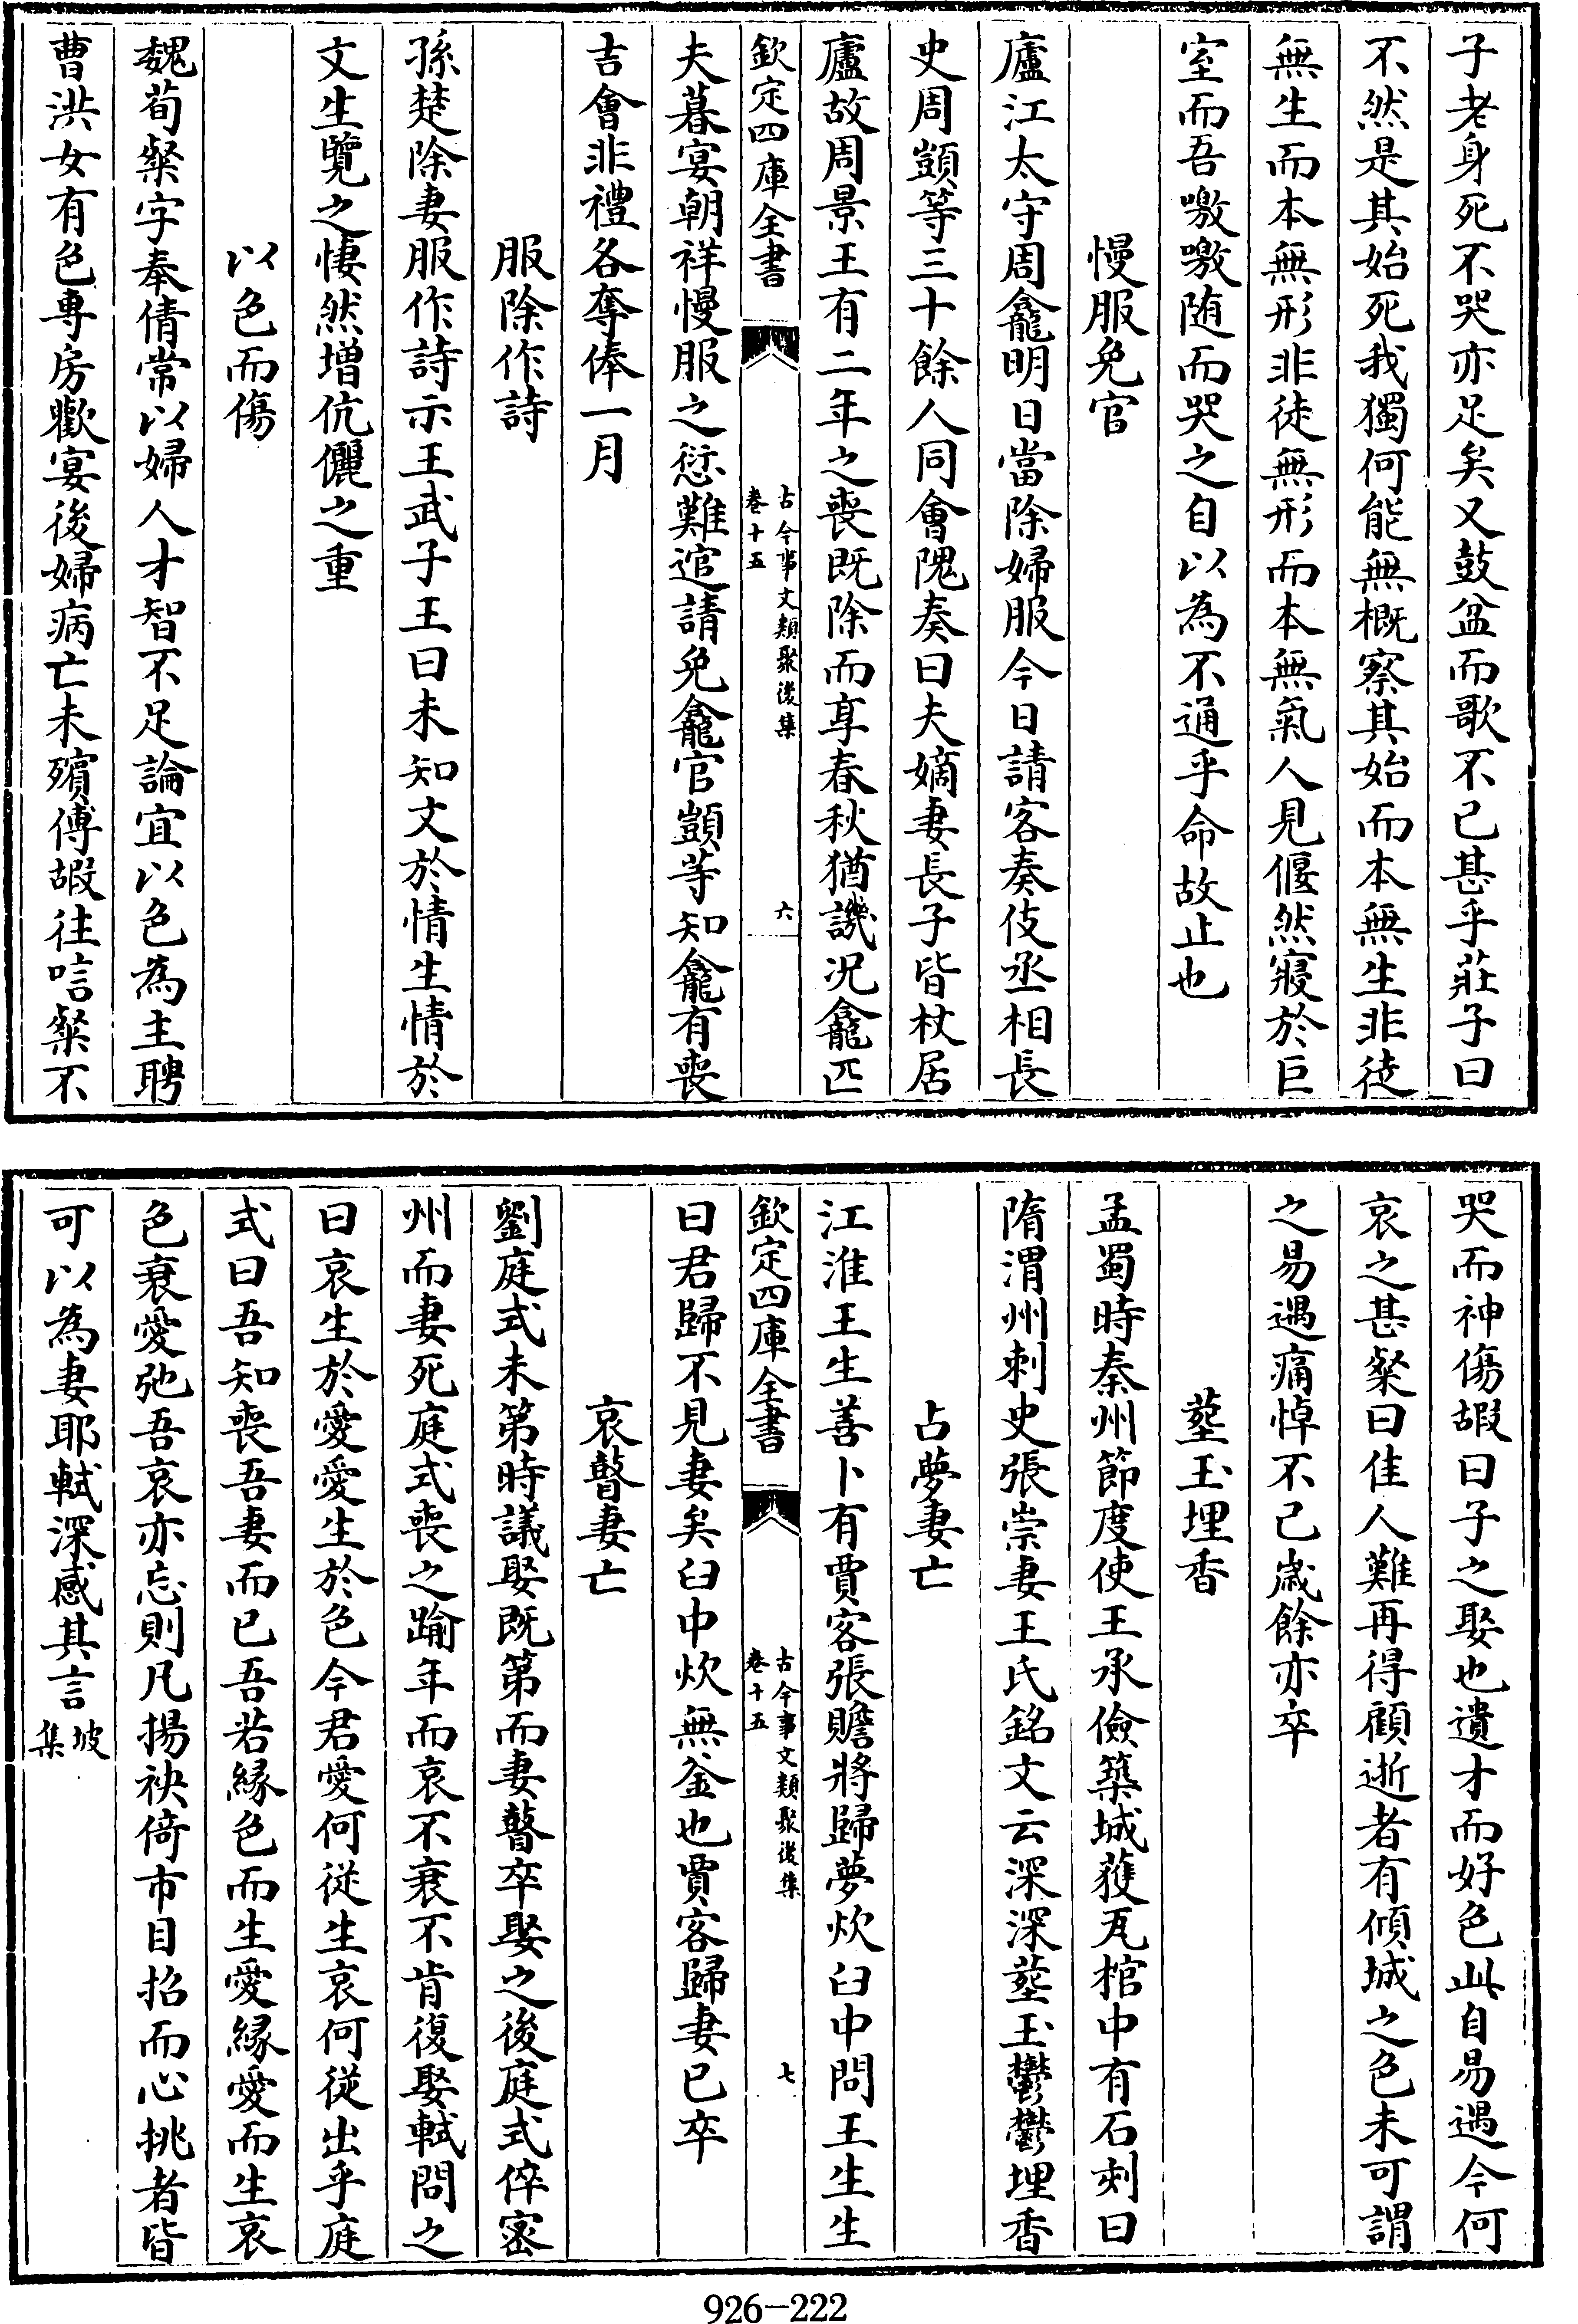 子老身死不哭亦足矣又鼓盆而歌不已甚乎莊子曰
不然是其始死我獨何能無概察其始而本無生非徒
無生而本無形非徒無形而本無氣人見偃然寢於巨
室而吾噭噭随而哭之自以為不通乎命故止也
慢服免官
廬江太守周龕明日當除婦服今日請客奏伎丞相長
史周顗等三十餘人同會隗奏曰夫嫡妻長子皆杖居
廬故周景王有二年之喪既除而享春秋猶譏况龕匹
欽定四庫全書
古今事文類聚後集
卷十五
六
夫暮宴朝祥慢服之愆難逭請免龕官顗等知龕有喪
吉會非禮各奪俸一月
服除作詩
孫楚除妻服作詩示王武子王曰未知文於情生情於
文生覽之悽然增伉儷之重
以色而傷
魏荀粲字奉倩常以婦人才智不足論宜以色為主聘
曹洪女有色專房歡宴後婦病亡未殯傅嘏往唁粲不
哭而神傷嘏曰子之娶也遺才而好色此自易遇今何
哀之甚粲曰佳人難再得顧逝者有傾城之色未可謂
之易遇痛悼不已歲餘亦卒
塟玉埋香
孟蜀時秦州節度使王承儉築城獲瓦棺中有石刻曰
隋渭州刺史張崇妻王氏銘文云深深塟玉鬱鬱埋香
占夢妻亡
江淮王生善卜有賈客張贍將歸夢炊臼中問王生生
欽定四庫全書
古今事文類聚後集
卷十五
七
曰君歸不見妻矣臼中炊無釜也賈客歸妻已卒
哀瞽妻亡
劉庭式未第時議娶既第而妻瞽卒娶之後庭式倅密
州而妻死庭式喪之踰年而哀不衰不肯復娶軾問之
曰哀生於愛愛生於色今君愛何從生哀何從出乎庭
式曰吾知喪吾妻而已吾若縁色而生愛縁愛而生哀
色衰愛弛吾哀亦忘則凡揚袂倚市目招而心挑者皆
可以為妻耶軾深感其言坡集
926-222